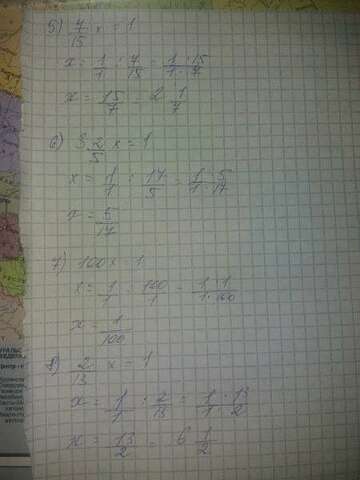 5) 7/15 x = 1
x = 1/1 : 7/15 = 1·15/1·7
x = 15/7 = 2 1/7
6) 3 2/5 x = 1
x = 1/1 : 17/5 = 1·5/1·17
x = 5/17
7) 100x = 1
x = 1/1 : 100/1 = 1·1/1·100
x = 1/100
8) 2/13 x = 1
x = 1/1 : 2/13 = 1·13/1·2
x = 13/2 = 6 1/2